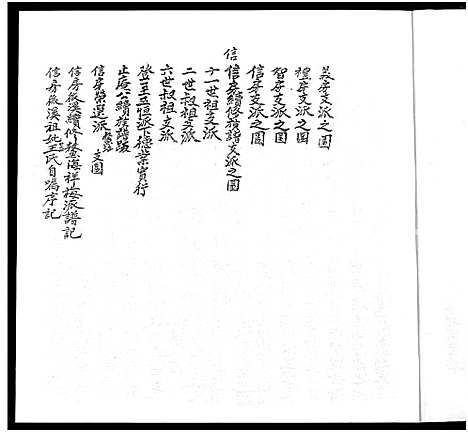 義房支派之圖
禮房支派之圖
智房支派之圖
信房支派之圖
信 信房續修族譜支派之圖
十一世祖支派
二世叔祖支派
六世叔祖支派
登王五恒派下德業實行
止庵公續族譜跋
信房榮選派 支圖
信房後溪續修 海祥梅派譜記
信房後溪祖妣王氏自為序記